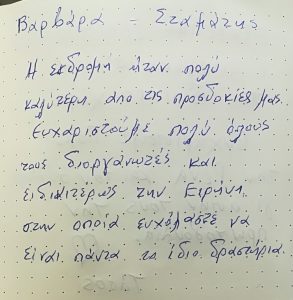 Βαρβάρα - Σταμάτης
Η εκδρομή ήταν πολύ
καλύτερη απο τις προσδοκίες μας.
Ευχαριστούμε πολύ όλους
τους διοργανωτές και
ειδιαιτέρως την Ειρήνη
στην οποία ευχόμαστε να
είναι πάντα το ίδιο δραστήρια.